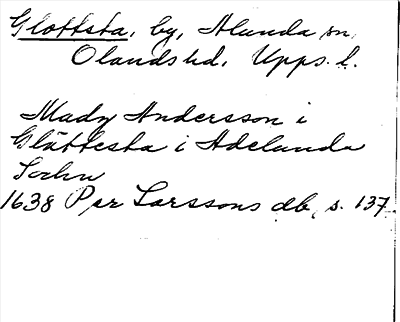 Glottsta, by, Alunda sn,
Olands hd, Upps. l.
Mady Andersson i
Glättesta i Adelunda
Sochn
1638 Per Larssons db, s. 137.